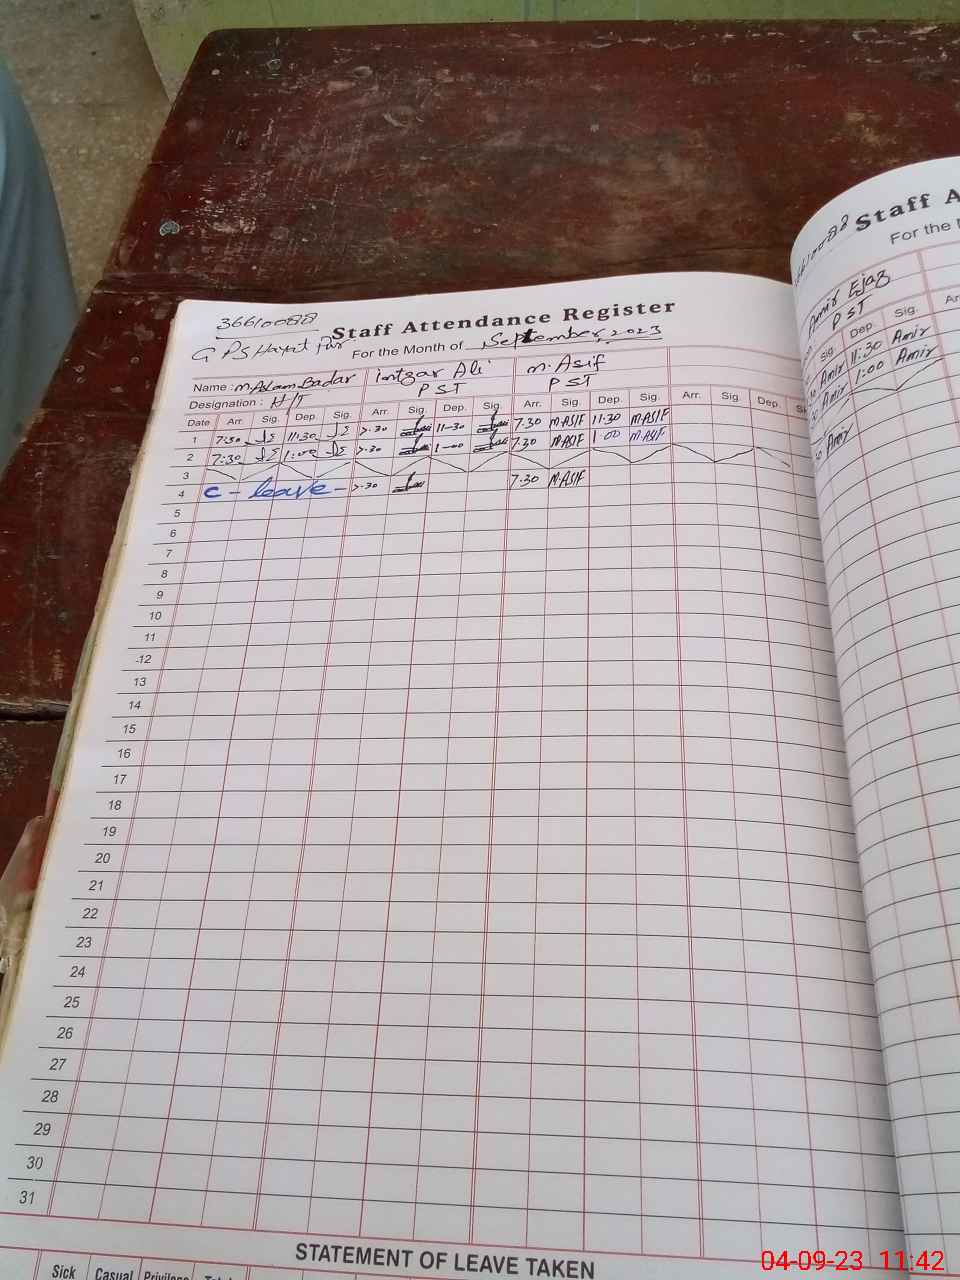 36610088
Staff Attendance Register
G PS Hayat Pur For the Month of September, 2023
Name : M. Aslam Badar Intzar Ali M. Asif
Designation : H/T PST PST
Date Arr. Sig. Dep. Sig. Arr. Sig. Dep. Sig. Arr. Sig. Dep. Sig. Arr. Sig. Dep.
1 7:30 11:30 7.30 11-30 7.30 M.ASIF 11.30 M.ASIF
2 7:30 1:00 7.30 1-00 7.30 M.ASIF 1.00 M.ASIF
3
4 C - leave - 7.30 7.30 M.ASIF
5
6
7
8
9
10
11
12
13
14
15
16
17
18
19
20
21
22
23
24
25
26
27
28
29
30
31
STATEMENT OF LEAVE TAKEN
Sick Casual
Staff A
For the
Amir Ejaz
PST
Sig. Dep. Sig. Ar
Amir 11:30 Amir
Amir 1:00 Amir
Amir
04-09-23 11:42